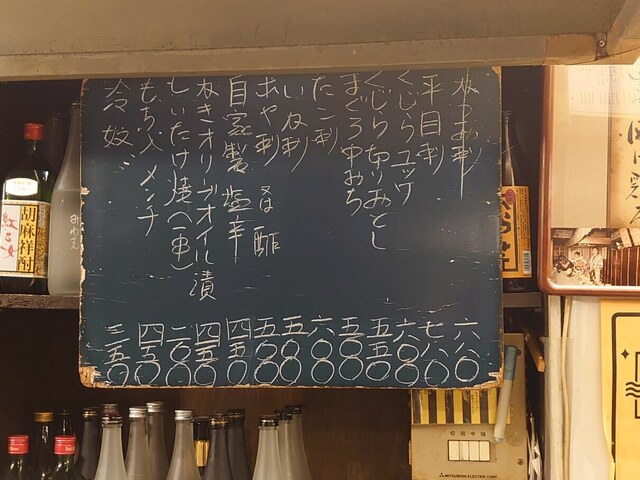 かつお刺 六八〇
平目刺 七八〇
くじらユッケ 六〇〇
くじら切りおとし 五五〇
まぐろ中おち 五〇〇
たこ刺 六〇〇
刺 五〇〇
刺 又は 酢 五〇〇
自家製 塩辛 四五〇
ねぎオリーブオイル漬 四五〇
しいたけ焼(一串) 二〇〇
もち入メンチ 四五〇
冷奴 三五〇
胡麻祥酎
紅乙女
MITSUBISHI ELECTRIC CORP.